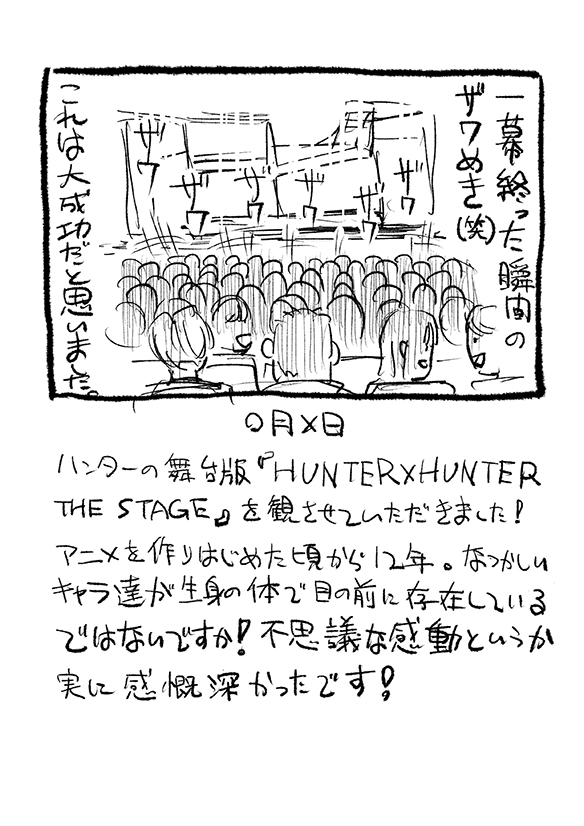 一幕終った瞬間の
ザワめき(笑)
ザワ
ザワ
ザワ
ザワ
ザワ
これは大成功だと思いました。
〇月×日
ハンターの舞台版『HUNTER×HUNTER
THE STAGE』を観させていただきました!
アニメを作りはじめた頃から12年。なつかしい
キャラ達が生身の体で目の前に存在している
ではないですか!不思議な感動というか
実に感慨深かったです!